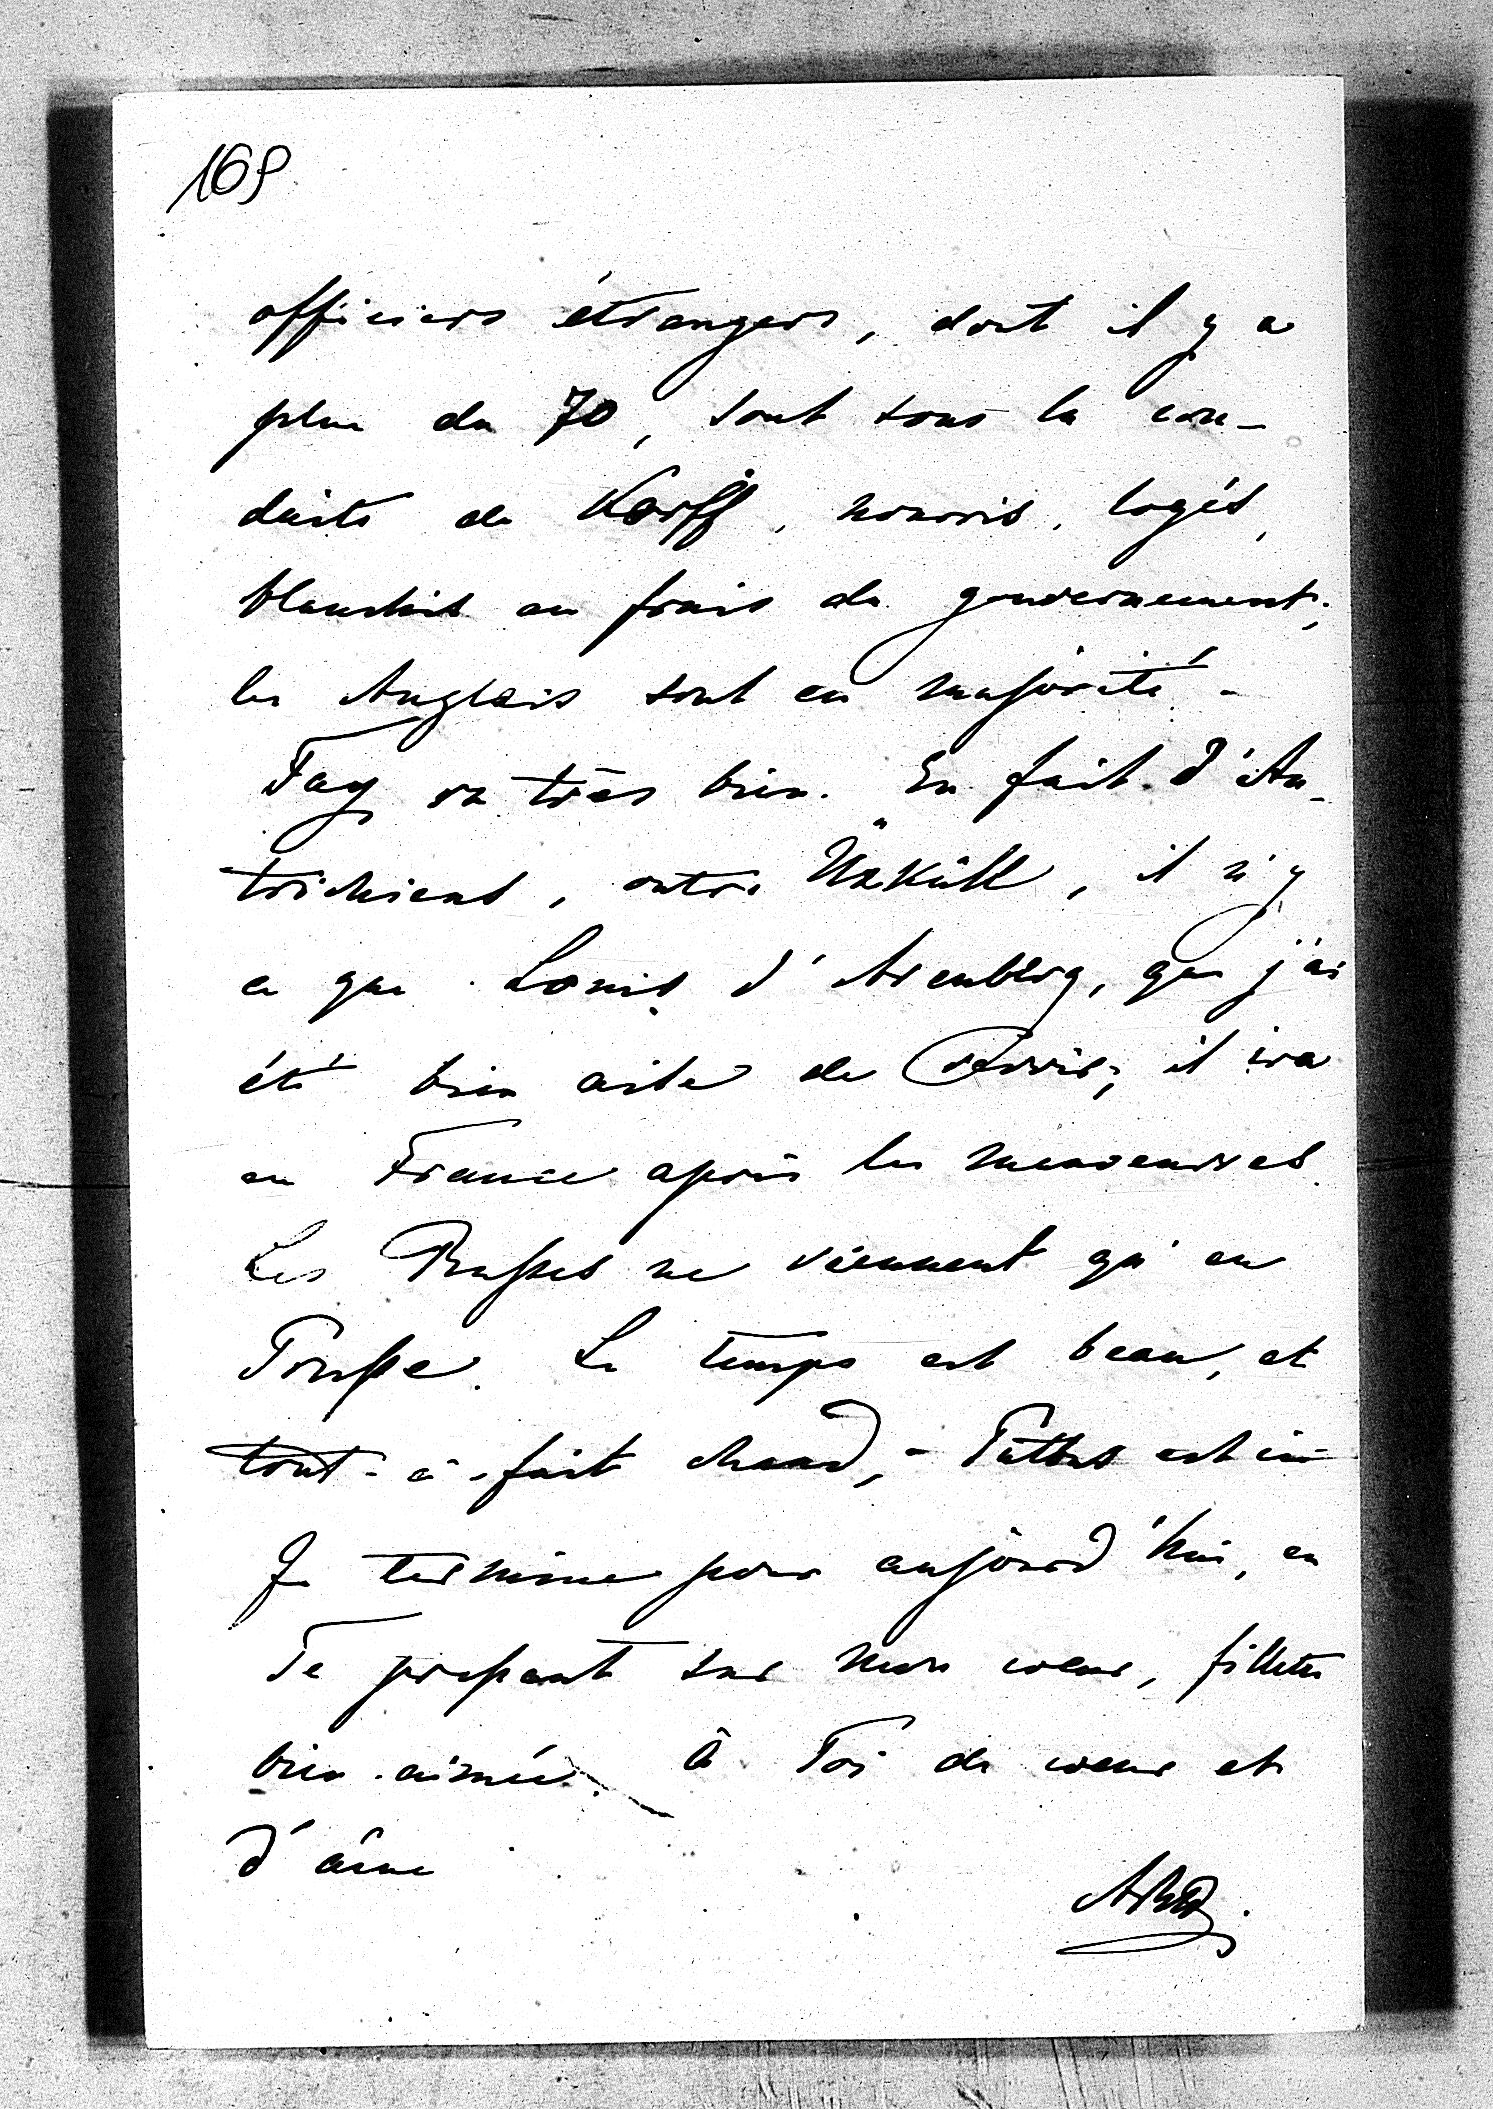 169
officiers étrangers, dont il y a
plus de 70, sont sous la con-
duite de Korff, nourris, logés,
blanchis au frais du gouvernement;
les Anglais sont en majorité -
Fay va très bien. En fait d'Au-
trichiens, outre Üxküll, il n'y
a que Louis d'Aremberg, que j'ai
été bien aise de revoir; il ira
en France après les manoeuvres.
Les Russes ne viennent qu'en
Prusse. Le temps est beau, et
tout-à-fait chaud, - est ici
Je termine pour aujourd'hui, en
Te pressant sur mon coeur, fillette
bien-aimée. à Toi de coeur et
d'âme